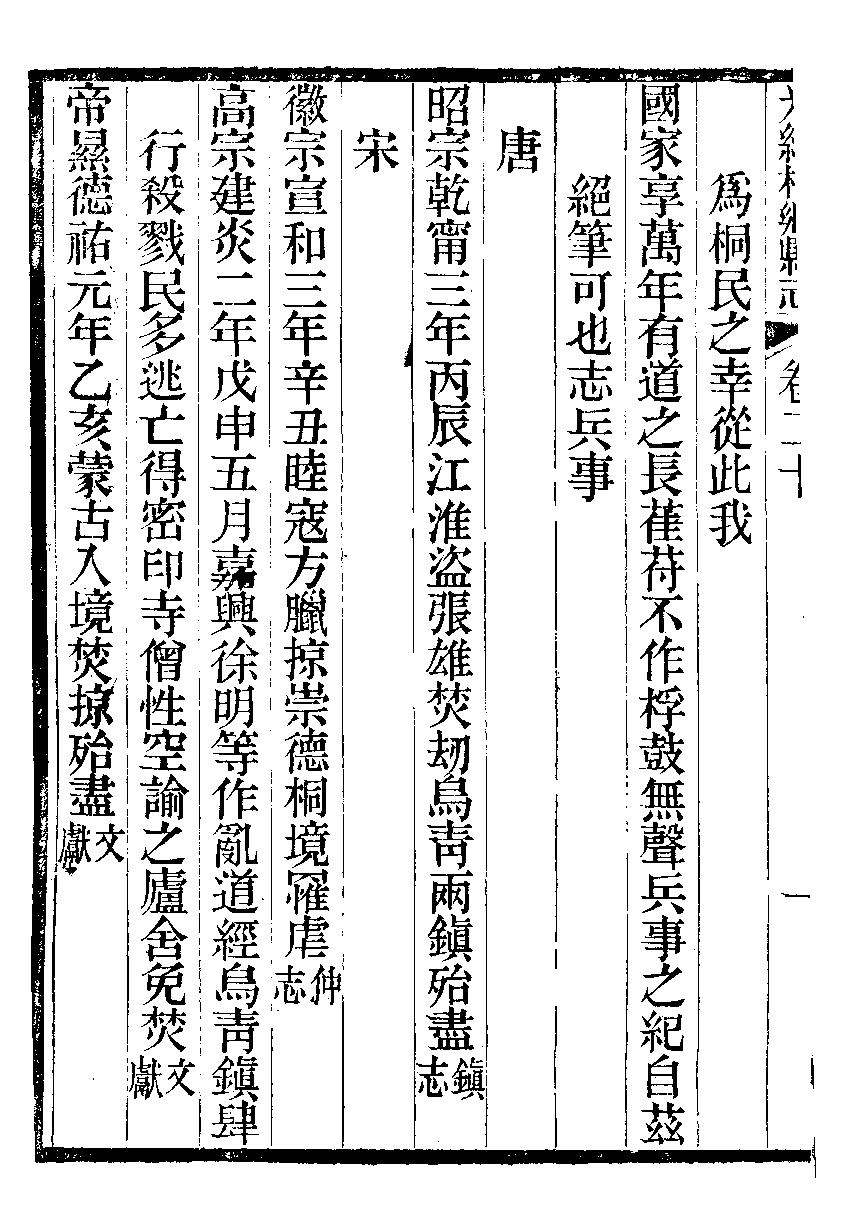 桐鄉縣志 卷二十 一
爲桐民之幸從此我
國家享萬年有道之長萑苻不作桴鼓無聲兵事之紀自茲
絕筆可也志兵事
唐
昭宗乾甯三年丙辰江淮盜張雄焚刼烏靑兩鎭殆盡鎭志
宋
徽宗宣和三年辛丑睦寇方臘掠崇德桐境罹虐仲志
高宗建炎二年戊申五月嘉興徐明等作亂道經烏靑鎭肆
行殺戮民多逃亡得密印寺僧性空諭之廬舍免焚文獻
帝㬎德祐元年乙亥蒙古入境焚掠殆盡文獻